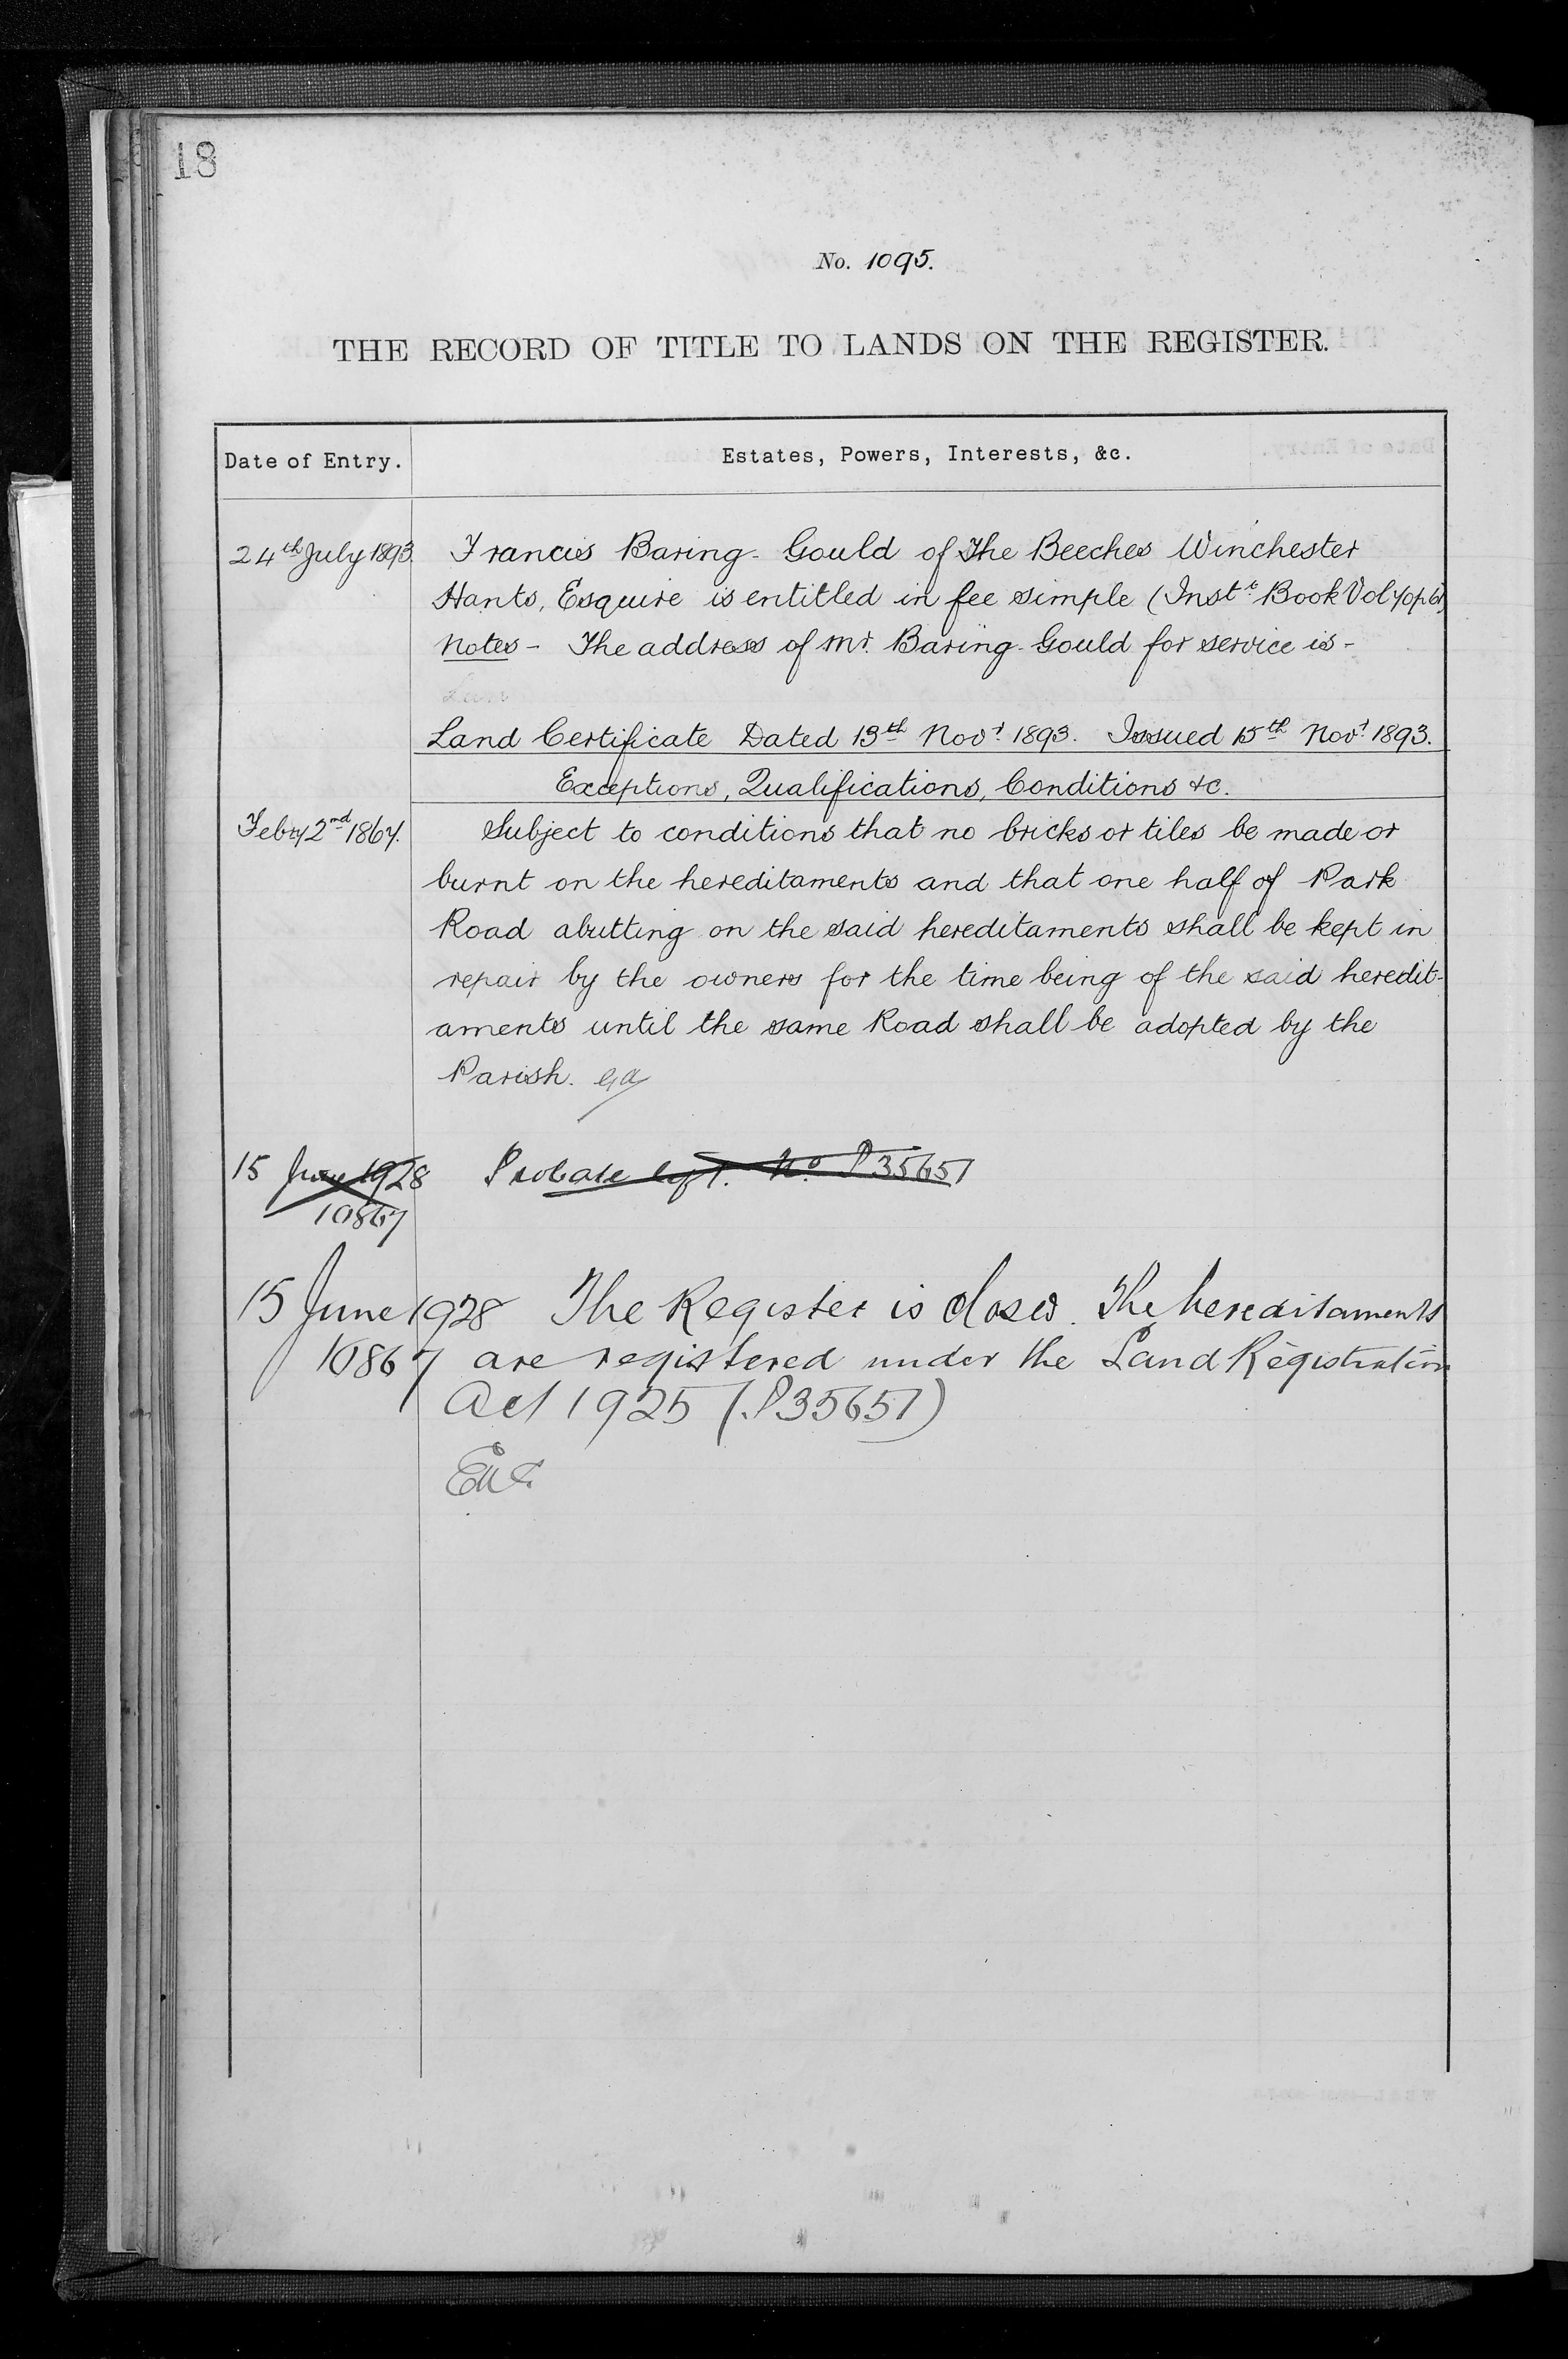 18
No. 1095.
THE RECORD OF TITLE TO LANDS ON THE REGISTER.
Date of Entry.
Estates, Powers, Interests, &c.
24th July 1893. Francis Baring-Gould of The Beeches Winchester
Hants, Esquire is entitled in fee simple (Instt Book Vol 70 p 61)
Notes - The address of Mr. Baring-Gould for service is -
Land Certificate Dated 13th Novr 1893. Issued 15th Novr 1893.
Exceptions, Qualifications, Conditions &c.
Febry 2nd 1867. Subject to conditions that no bricks or tiles be made or
burnt on the hereditaments and that one half of Park
Road abutting on the said hereditaments shall be kept in
repair by the owners for the time being of the said heredit-
aments until the same Road shall be adopted by the
Parish.
15 June 1928 Probate No. P35651
10867
15 June 1928 The Register is closed. The hereditaments
10867 are registered under the Land Registration
Act 1925 (P35651)